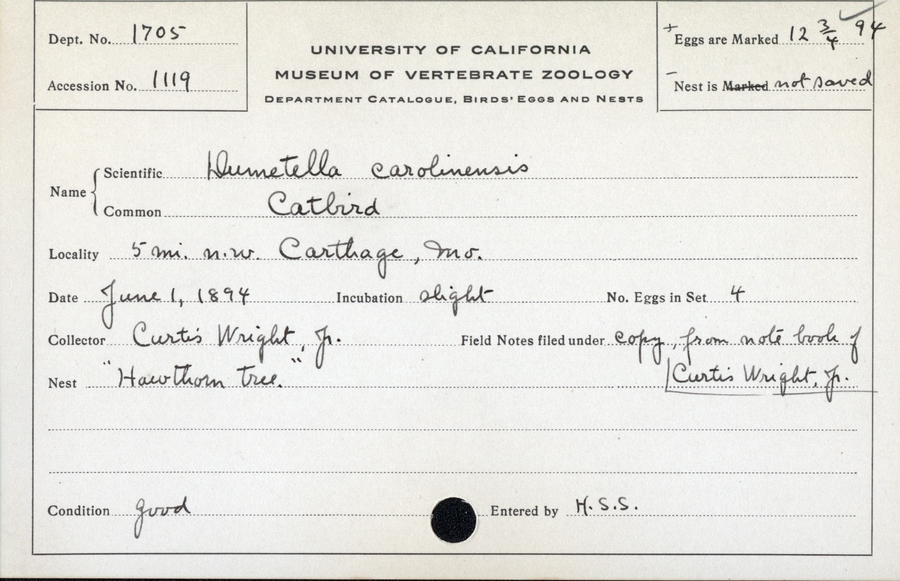 Dept. No. 1705
Accession No. 1119
UNIVERSITY OF CALIFORNIA
MUSEUM OF VERTEBRATE ZOOLOGY
DEPARTMENT CATALOGUE, BIRDS' EGGS AND NESTS
+ Eggs are Marked 12 3/4 94
- Nest is Marked not saved
Name { Scientific Dumetella carolinensis
Common Catbird
Locality 5 mi. n.w. Carthage, Mo.
Date June 1, 1894 Incubation slight No. Eggs in Set 4
Collector Curtis Wright, Jr. Field Notes filed under copy, from note book of
Nest "Hawthorn tree." Curtis Wright, Jr.
Condition good Entered by H.S.S.